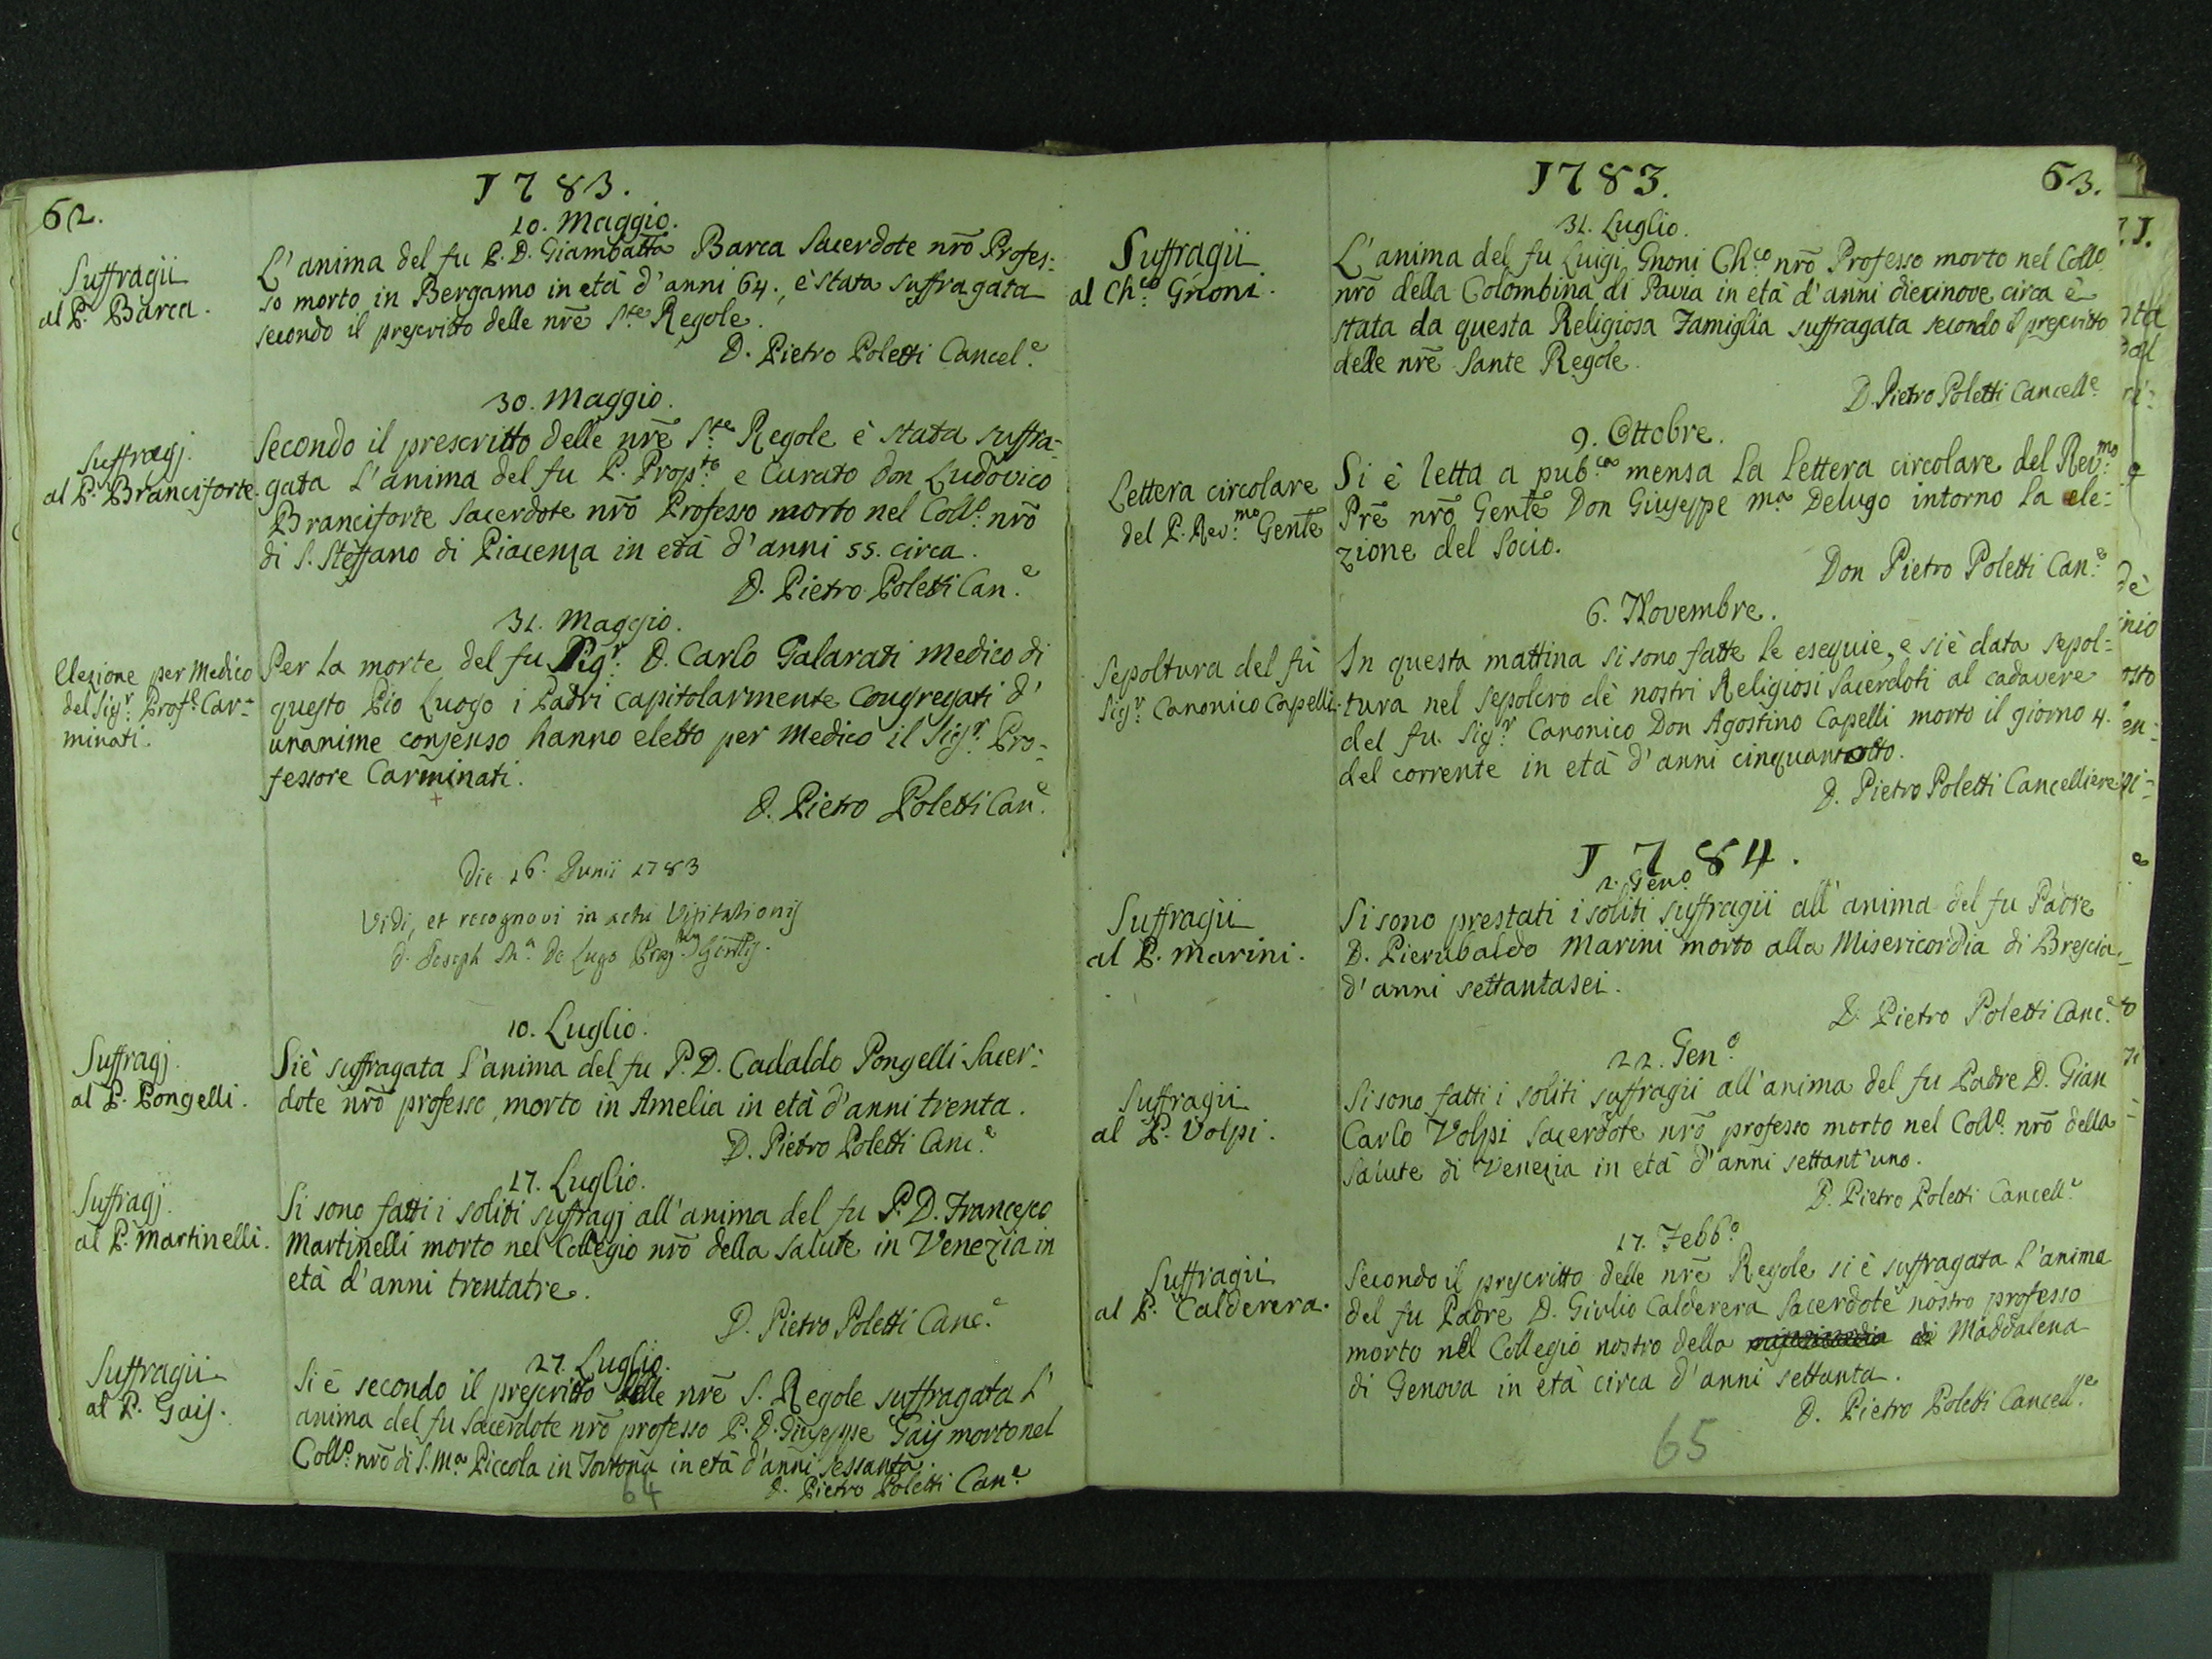 62.
1783.
10. Maggio.
Suffragii
al P. Barca.
L'anima del fu P. D. Giambatta Barca Sacerdote nrō Profes:
so morto in Bergamo in età d'anni 64., è stata suffragata
secondo il prescritto delle nrē S.te Regole.
D. Pietro Poletti Cancel.e
30. Maggio.
Suffragj.
al P. Branciforte.
Secondo il prescritto delle nrē S.te Regole è stata suffra-
gata l'anima del fu P. Prop.to e Curato Don Ludovico
Branciforte Sacerdote nrō Professo morto nel Coll.o nrō
di S. Steffano di Piacenza in età d'anni 55. circa.
D. Pietro Poletti Can.e
31. Maggio.
Elezione per Medico
del Sig.r Prof.e Car-
minati.
Per la morte del fu Sig.r D. Carlo Galarati Medico di
questo Pio Luogo i Padri capitolarmente Congregati d'
unanime consenso hanno eletto per Medico il Sig.r Pro-
fessore Carminati.
D. Pietro Poletti Can.e
Die 16. Junii 1783
Vidi, et recognovi in actu Visitationis
d. Joseph M.a De Lugo Præp.tus Gēnlis.
10. Luglio.
Suffragj.
al P. Pongelli.
Si è suffragata l'anima del fu P. D. Cadaldo Pongelli Sacer-
dote nrō professo, morto in Amelia in età d'anni trenta.
D. Pietro Poletti Canc.e
17. Luglio.
Suffragj.
al P. Martinelli.
Si sono fatti i soliti suffragj all'anima del fu P. D. Francesco
Martinelli morto nel Collegio nrō della Salute in Venezia in
età d'anni trentatre.
D. Pietro Poletti Canc.e
27. Luglio.
Suffragii
al P. Gaij.
Si è secondo il prescritto delle nrē S. Regole suffragata l'
anima del fu Sacerdote nrō professo P. D. Giuseppe Gaij morto nel
Coll.o nrō di S. M.a Piccola in Tortona in età d'anni sessanta.
D. Pietro Poletti Can.e
64
1783.
63.
31. Luglio.
Suffragii
al Ch.co Gnoni.
L'anima del fu Luigi Gnoni Ch.co nrō Professo morto nel Coll.o
nrō della Colombina di Pavia in età d'anni diecinove circa è
stata da questa Religiosa Famiglia suffragata secondo il prescritto
delle nrē Sante Regole.
D. Pietro Poletti Cancell.e
9. Ottobre.
Lettera circolare
del P. Rev.mo Genle
Si è letta a pub.ca mensa la lettera circolare del Rev.mo
Prē nrō Genle Don Giuseppe M.a Delugo intorno la ele:
zione del Socio.
Don Pietro Poletti Can.e
6. Novembre.
Sepoltura del fù
Sig.r Canonico Capelli.
In questa mattina si sono fatte le esequie, e si è data sepol-
tura nel sepolcro de' nostri Religiosi Sacerdoti al cadavere
del fu Sig.r Canonico Don Agostino Capelli morto il giorno 4.
del corrente in età d'anni cinquantotto.
D. Pietro Poletti Cancelliere
1784.
2. Gen.o
Suffragii
al P. Marini.
Si sono prestati i soliti suffragii all'anima del fu Padre
D. Pierubaldo Marini morto alla Misericordia di Brescia
d'anni settantasei.
D. Pietro Poletti Canc.e
22. Gen.o
Suffragii
al P. Volpi.
Si sono fatti i soliti suffragii all'anima del fu Padre D. Gian
Carlo Volpi Sacerdote nrō professo morto nel Coll.o nrō della
Salute di Venezia in età d'anni settant'uno.
D. Pietro Poletti Cancell.e
17. Febb.o
Suffragii
al P. Calderera.
Secondo il prescritto delle nrē Regole si è suffragata l'anima
del fu Padre D. Giulio Calderera Sacerdote nostro professo
morto nel Collegio nostro della Maddalena
di Genova in età circa d'anni settanta.
D. Pietro Poletti Cancell.e
65